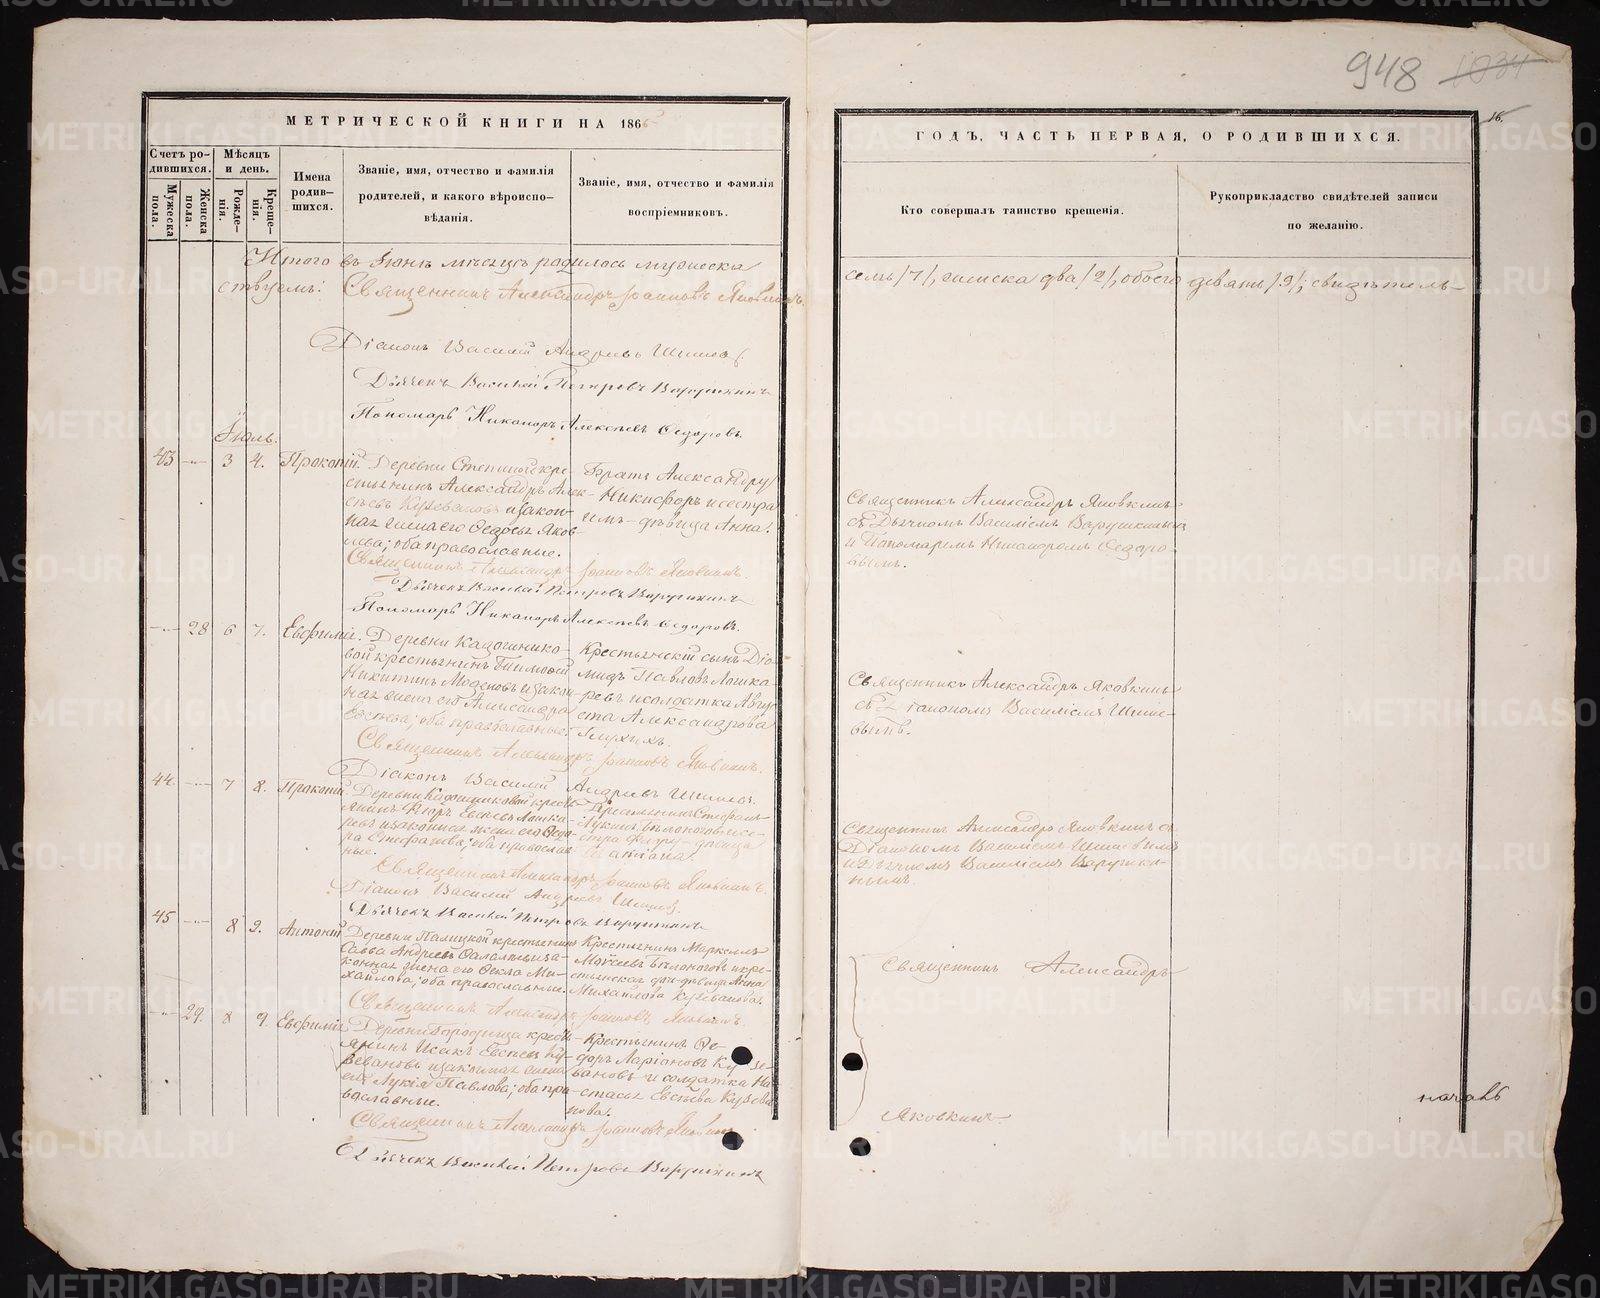 948 1034
16.
МЕТРИЧЕСКОЙ КНИГИ НА 186
ГОДЪ, ЧАСТЬ ПЕРВАЯ, О РОДИВШИХСЯ.
Счетъ ро-
дившихся.
Мужеска пола.
Женска пола.
Мѣсяцъ
и день.
Рожде-
нія.
Креще-
нія.
Имена
родив-
шихся.
Званіе, имя, отчество и фамилія
родителей, и какого вѣроиспо-
вѣданія.
Званіе, имя, отчество и фамилія
воспріемниковъ.
Кто совершалъ таинство крещенія.
Рукоприкладство свидѣтелей записи
по желанію.
Итого въ Іюнѣ мѣсяцѣ родилось мужеска
семь /7/, женска два /2/, обоего девять /9/; свидѣтель-
ствуемъ: Священникъ Александръ Іоанновъ Яковкинъ
Діаконъ Василій Андреевъ
Дьячекъ Василій Петровъ Варушкинъ
Пономарь Никаноръ Алексѣевъ Ѳедоровъ.
Іюль.
43 3 4. Прокопій.
Деревни кре-
стьянинъ Александръ Алек-
сѣевъ и закон-
ная жена его Яков-
лева; оба православные.
Братъ Александру
Никифоръ и сестра
имъ дѣвица Анна.
Священникъ Александръ Яковкинъ
съ Дьячкомъ Василіемъ Варушкинымъ
и Пономаремъ Никаноромъ Ѳедоро-
вымъ.
Священникъ Александръ Іоанновъ Яковкинъ.
Дьячекъ Василій Петровъ Варушкинъ
Пономарь Никаноръ Алексѣевъ Ѳедоровъ.
28 6 7. Евфимія.
Деревни
вой крестьянинъ Тимофей
Никитинъ и закон-
ная жена его Александра
оба православные.
Крестьянскій сынъ Діо-
мидъ Павловъ Лошка-
ревъ и солдатка Авгу-
ста Александрова
Священникъ Александръ Яковкинъ
съ Діакономъ Василіемъ
Священникъ Александръ Іоанновъ Яковкинъ.
Діаконъ Василій Андреевъ
44 7 8. Прокопій.
Деревни кресть-
янинъ Евсѣевъ Лошка-
ревъ и законная жена его Ѳедо-
ра оба православ-
ные.
Крестьянинъ Стефанъ
Лукинъ Бѣлоноговъ и се-
стра дѣвица
Священникъ Александръ Яковкинъ съ
Діакономъ Василіемъ
и Дьячкомъ Василіемъ Варушки-
нымъ.
Священникъ Александръ Іоанновъ Яковкинъ.
Діаконъ Василій Андреевъ
Дьячекъ Василій Петровъ Варушкинъ
45 8 9. Антоній
Деревни крестьянинъ
Савва Андреевъ и за-
конная жена его Ѳекла Ми-
хайлова; оба православные.
Крестьянинъ
Бѣлоноговъ и кре-
стьянская дѣвица Анна
Михайлова
Священникъ Александръ
Яковкинъ
Священникъ Александръ Іоанновъ Яковкинъ
29. 8 9. Евфимія
Деревни кресть-
янинъ Исакъ Евсѣевъ Ку-
зевановъ и законная жена
его Лукія Павлова; оба пра-
вославные.
Крестьянинъ Ѳе-
доръ Ларіоновъ Кузе-
вановъ и солдатка На-
стасья Евсѣева Кузева-
нова.
Священникъ Александръ Іоанновъ Яковкинъ
Дьячекъ Василій Петровъ Варушкинъ
началъ
METRIKI.GASO-URAL.RU